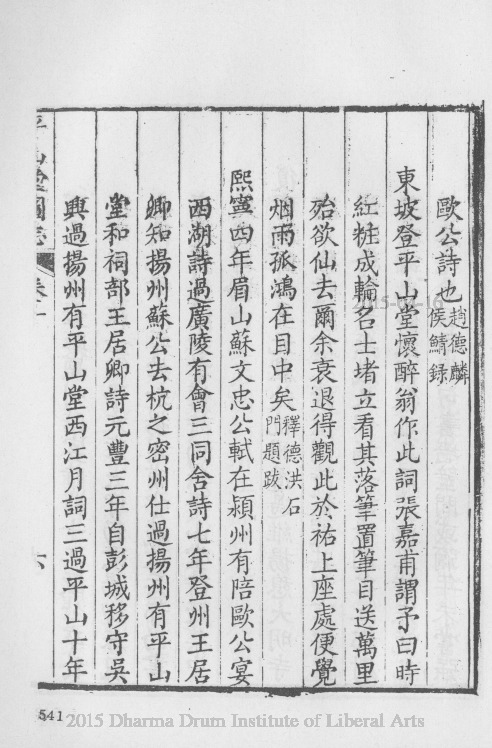 歐公詩也趙德麟侯鯖錄
東坡登平山堂懷醉翁作此詞張嘉甫謂予曰時
紅粧成輪名士堵立看其落筆置筆目送萬里
殆欲仙去爾余衰退得觀此於祐上座處便覺
烟雨孤鴻在目中矣釋德洪石門題跋
熙寧四年眉山蘇文忠公軾在潁州有陪歐公宴
西湖詩過廣陵有會三同舍詩七年登州王居
卿知揚州蘇公去杭之密州仕過揚州有平山
堂和祠部王居卿詩元豐三年自彭城移守吳
興過揚州有平山堂西江月詞三過平山十年
平山堂圖志 卷十 六
541
2015 Dharma Drum Institute of Liberal Arts